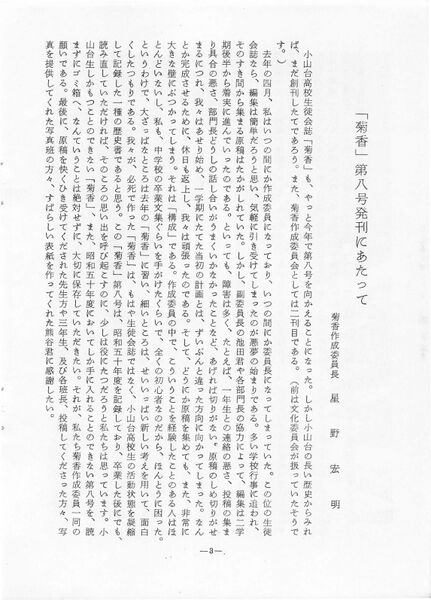 「菊香」第八号発刊にあたって
菊香作成委員長　星野宏明
小山台高校生徒会誌「菊香」も、やっと今年で第八号を向かえることになった。しかし小山台の長い歴史からみれ
ば、まだ創刊したてであろう。また、菊香作成委員会としては二刊目である。（前は文化委員会が扱っていたそうで
す。）
去年の四月、私はいつの間にか作成委員になっており、いつの間にか委員長になってしまっていた。この位の生徒
会誌なら、編集は簡単だろうと思い、気軽に引き受けてしまったのが悪夢の始まりである。多い学校行事に追われ、
そのすき間から集まる原稿はたかがしれていた。しかし、副委員長の池田君や各部門長の協力によって、編集は二学
期後半から着実に進んでいったのである。といっても、障害は多く、たとえば、一年生との連絡の悪さ、投稿の集ま
り具合の悪さ、部門長どうしの話し合いがうまくいかなかったことなど、あげれば切りがない。原稿のしめ切りがせ
まるにつれ、我々はあせり始め、一学期にたてた当初の計画とは、ずいぶんと違った方向に向かってしまった。なん
とか完成させるために、休日も返上し、我々は頑張ったのである。そして、どうにか原稿を集めても、また、非常に
大きな壁にぶつかってしまう。それは「構成」である。作成委員の中で、こういうことを経験したことのある人はほ
とんどいないし、私も、中学校の卒業文集ぐらいを手がけたくらいで、全くの初心者なのだから、ほんとうに困った。
というわけで、大ざっぱなところは去年の「菊香」に習い、細いところは、せいいっぱい新しい考えを用いて、面白
くしたつもりである。我々が、必死で作った「菊香」は、もはや生徒会誌ではなく、小山台高校生の活動状態を凝縮
して記録した一種の歴史書であると思う。この「菊香」第八号は、昭和五十年度を記録しており、卒業した後にでも、
読み直していただければ、そのころの思い出を呼び起こすのに、少しは役にたつだろうと私たちは思っています。小
山台生しかもつことのできない「菊香」、また、昭和五十年度においてしか手に入れることのできない第八号を、読
まずにゴミ箱へ、なんていうことは絶対せずに、大切に保存していただきたい。それが、私たち菊香作成委員一同の
願いである。最後に、原稿を快くひき受けてくださった先生方や三年生、及び各班長、投稿してくださった方々、写
真を提供してくれた写真班の方々、すばらしい表紙を作ってくれた熊谷君に感謝したい。
―3―